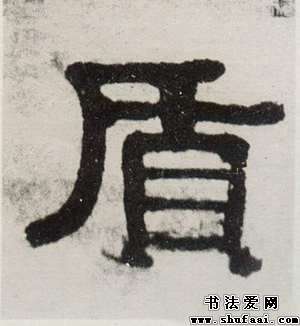 盾
书法爱网
www.shufaai.com